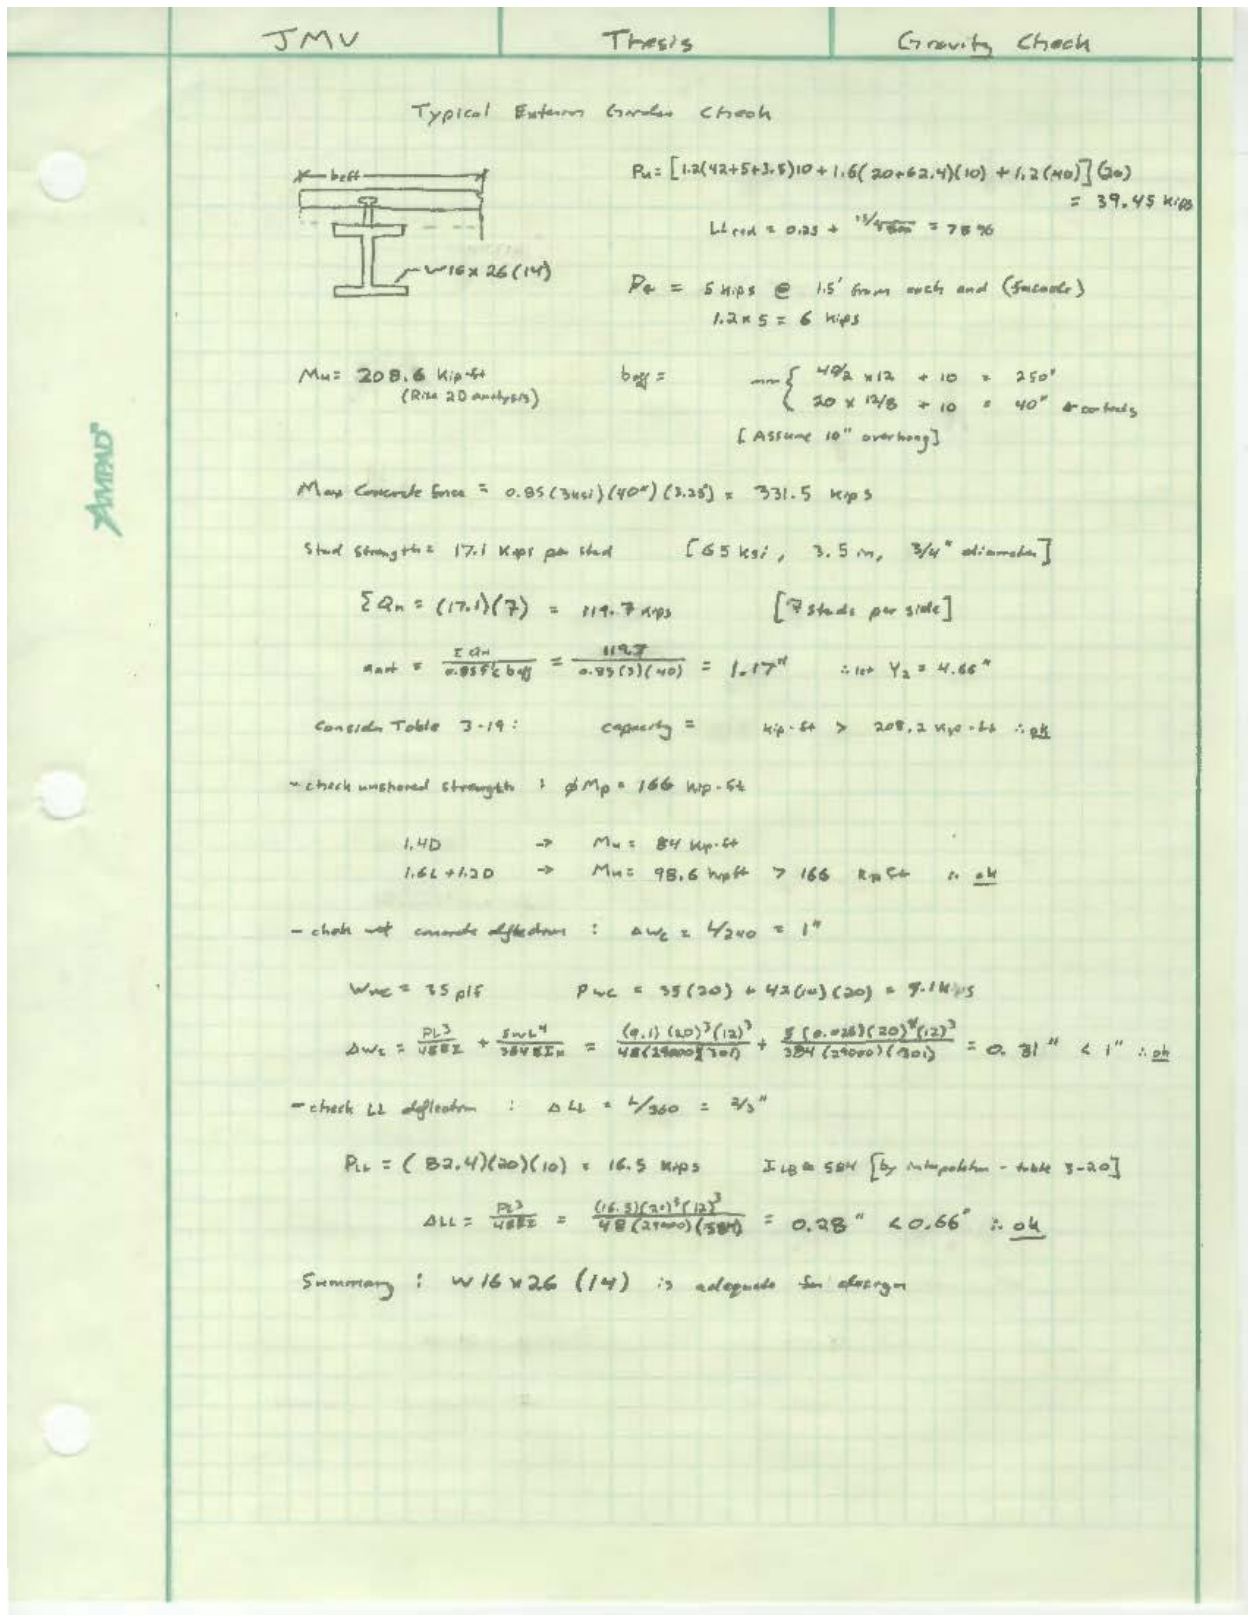 JMV
Thesis
Gravity Check
Typical Exterior Girder Check
beff
W16x26(14)
Pu = [1.2(42+5+3.5)10+1.6(20+62.4)(10) + 1.2(40)](20)
= 39.45 kips
LL red = 0.25 + = 78%
= 5 kips @ 1.5' from each end (facade)
1.2 x 5 = 6 kips
Mu = 208.6 kip-ft
(Risa 2D analysis)
beff =
min { 40/2 x12 + 10 = 250"
20 x 12/8 + 10 = 40" ← controls
[Assume 10" overhang]
Max Concrete force = 0.85(3ksi)(40")(3.25) = 331.5 kips
Stud Strength = 17.1 kips per stud [65 ksi, 3.5 in, 3/4" diameter]
ΣQn = (17.1)(7) = 119.7 kips [7 studs per side]
= ΣQn/0.85f'c beff = 119.7/0.85(3)(40) = 1.17" ∴ let Y2 = 4.66"
Consider Table 3-19: capacity = kip-ft > 208.2 kip-ft ∴ ok
- check unshored strength : φMp = 166 kip-ft
1.4D -> Mu = 84 kip-ft
1.6L +1.2D -> Mu = 98.6 kipft > 166 kip ft ∴ ok
- check wet concrete deflection : Δwc = L/240 = 1"
Wwc = 35 plf Pwc = 35(20) + 42(10)(20) = 9.1 kips
Δwc = PL³/48EI + 5wL⁴/384EIx = (9.1)(20)³(12)³/48(29000)(301) + 5(0.026)(20)⁴(12)³/384(29000)(301) = 0.31" < 1" ∴ ok
- check LL deflection : ΔLL = L/360 = 2/3"
PLL = (82.4)(20)(10) = 16.5 kips ILB = 584 [by interpolation - table 3-20]
ΔLL = PL³/48EI = (16.5)(20)³(12)³/48(29000)(584) = 0.28" < 0.66" ∴ ok
Summary : W16x26 (14) is adequate for design
AMPAD